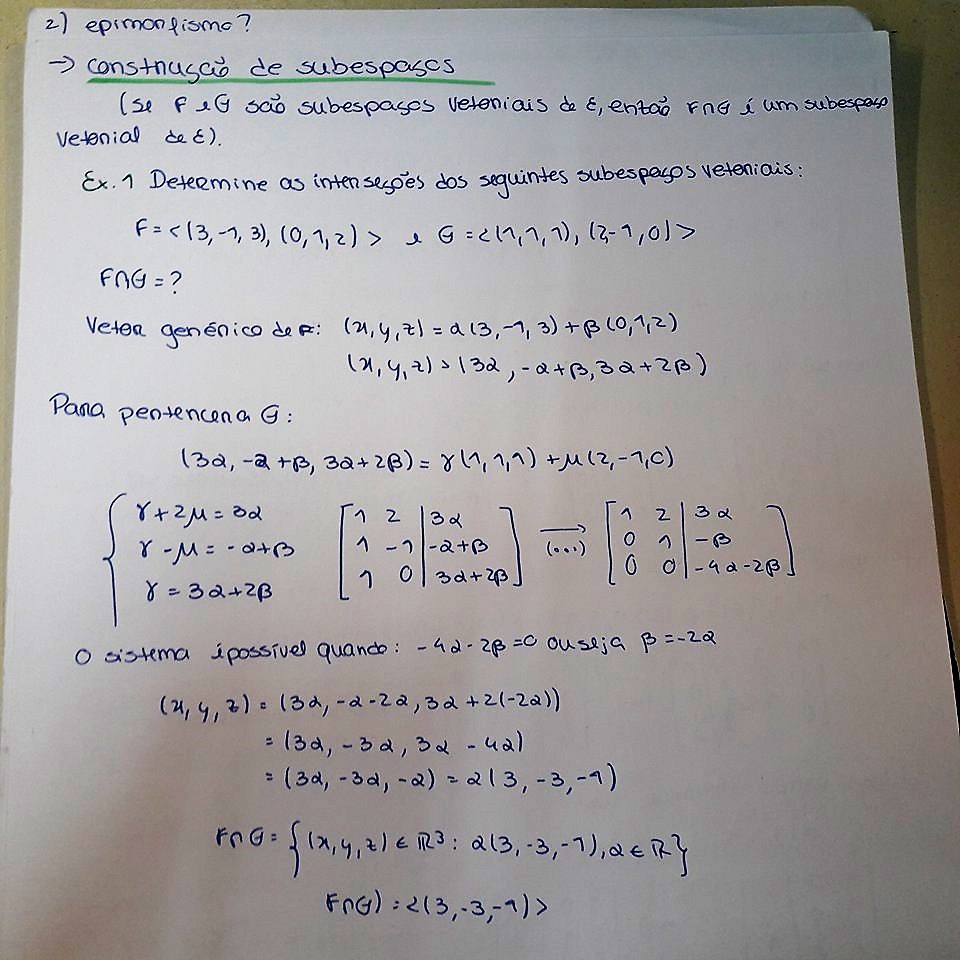 2) epimorfismo?
→ construção de subespaços
(se F e G são subespaços vetoriais de E, então F∩G é um subespaço
vetorial de E).
Ex. 1 Determine as interseções dos seguintes subespaços vetoriais:
F = <(3,-1,3), (0,1,2)> e G = <(1,1,1), (2,-1,0)>
F∩G = ?
Vetor genérico de F: (x,y,z) = α(3,-1,3) + β(0,1,2)
(x,y,z) = (3α, -α+β, 3α+2β)
Para pertencer a G:
(3α, -α+β, 3α+2β) = γ(1,1,1) + μ(2,-1,0)
{ γ+2μ = 3α [ 1 2 | 3α ] → [ 1 2 | 3α ]
γ-μ = -α+β [ 1 -1 | -α+β ] (...) [ 0 1 | -β ]
γ = 3α+2β [ 1 0 | 3α+2β ] [ 0 0 | -4α-2β ]
O sistema é possível quando: -4α-2β=0 ou seja β=-2α
(x,y,z) = (3α, -α-2α, 3α+2(-2α))
= (3α, -3α, 3α -4α)
= (3α, -3α, -α) = α(3,-3,-1)
F∩G = {(x,y,z) ∈ ℝ³ : α(3,-3,-1), α ∈ ℝ}
F∩G) = <(3,-3,-1)>